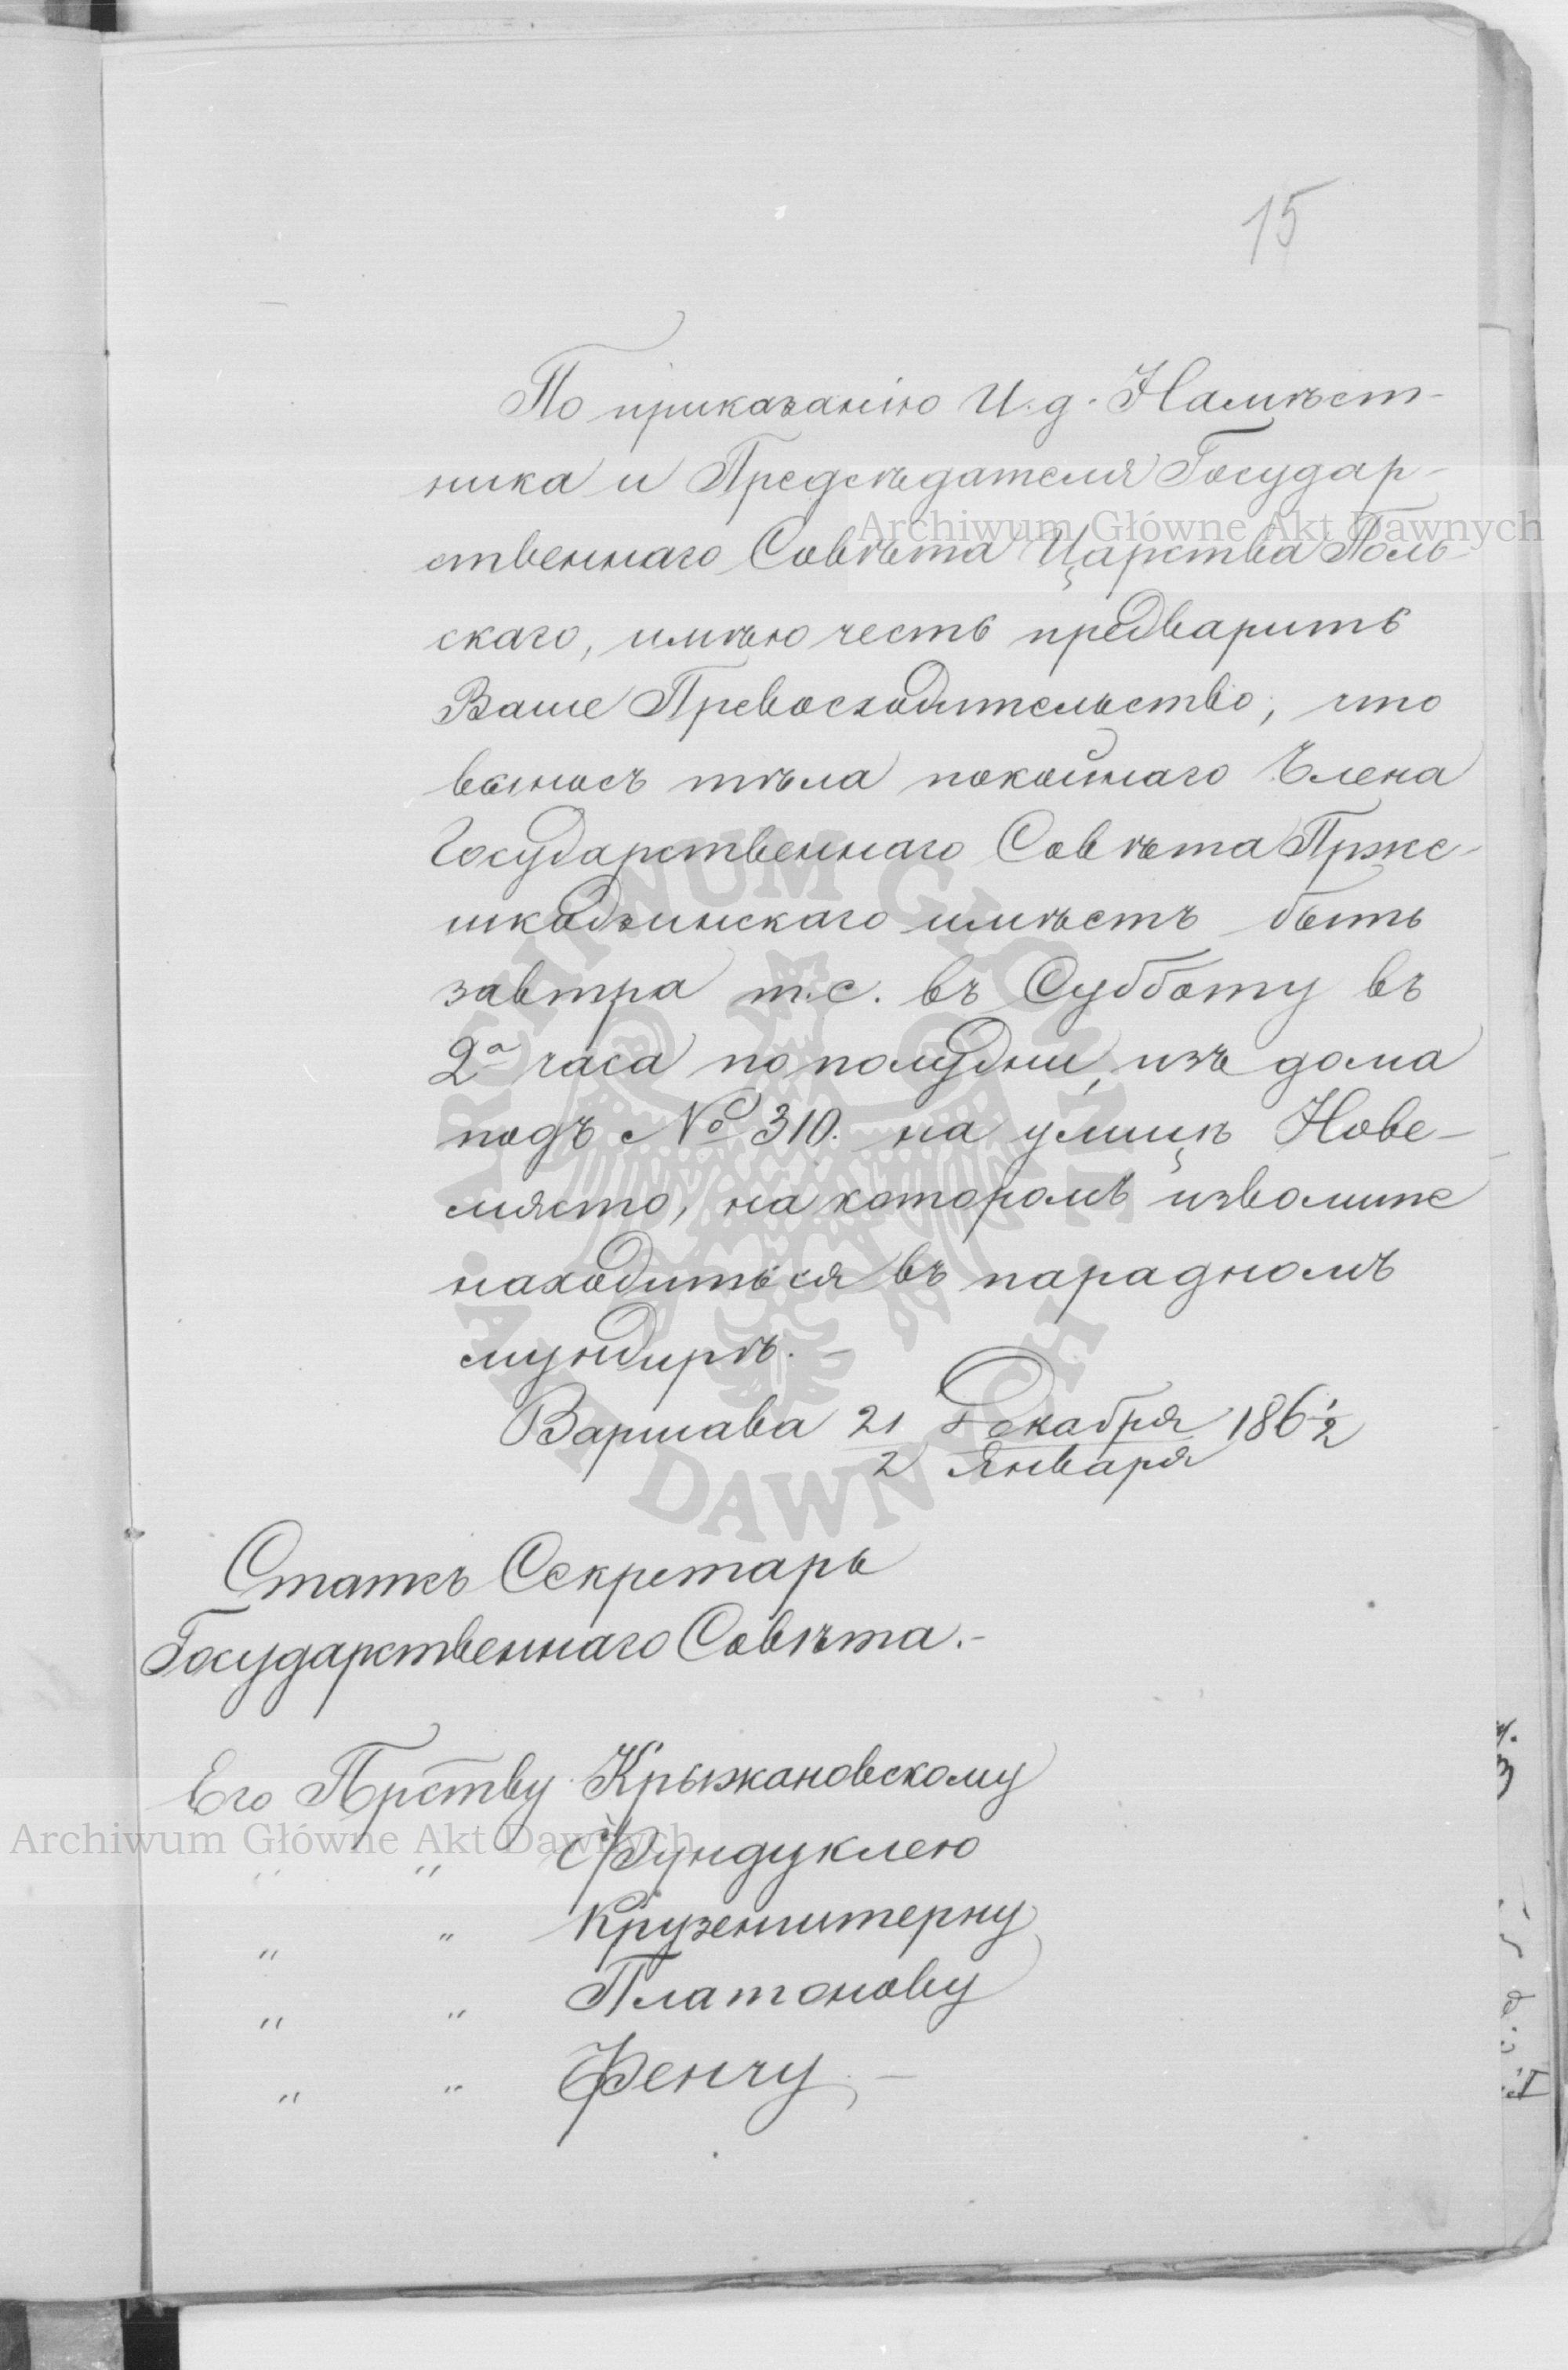 15
По приказанію И. д. Намѣст-
ника и Предсѣдателя Государ-
ственнаго Совѣта Царства Поль-
скаго, имѣю честь предварить
Ваше Превосходительство, что
выносъ тѣла покойнаго Члена
Государственнаго Совѣта Прже-
шкодзинскаго имѣетъ быть
завтра т. е. въ Субботу въ
2а часа по полудни, изъ дома
подъ № 310. на улицѣ Нове-
място, на которомъ изволите
находиться въ парадномъ
мундирѣ.
Варшава 21 Декабря 186 1/2
2 Января
Статсъ Секретарь
Государственнаго Совѣта.-
Его Прству Крыжановскому
" " Фундуклею
" " Крузенштерну
" " Платонову
" " Фенчу. -
Archiwum Główne Akt Dawnych
Archiwum Główne Akt Dawnych
ARCHIWUM GŁÓWNE · AKT DAWNYCH